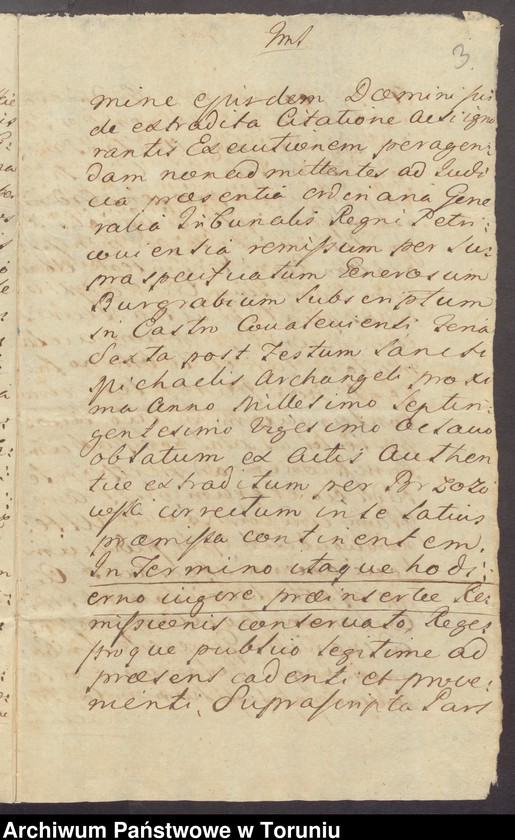 3.
mine ejusdem Domini sui
de extradita Citatione ac igno
rantis Executionem peragen:
dam non admittentes ad Judi
cia præsentia ordinaria Gene
ralia Tribunalis Regni Petri:
coviensia remissum per Su:
praspecificatum Generosum
Burgrabium Subscriptum
in Castro Covaleviensi Feria
Sexta post Festum Sancti
Michaelis Archangeli proxi
ma Anno Millesimo Septin:
gentesimo Vigesimo Octavo
oblatum ex Actis Authen
tice extraditum per Brzozo
wski correctum in se latius
præmissa continentem.
In Termino itaque hodi:
erno vigore præinsertæ Re:
missionis conservato, Rege:
stroque publico legitime ad
præsens cadenti et prove:
nienti, Suprascripta Pars
Archiwum Państwowe w Toruniu